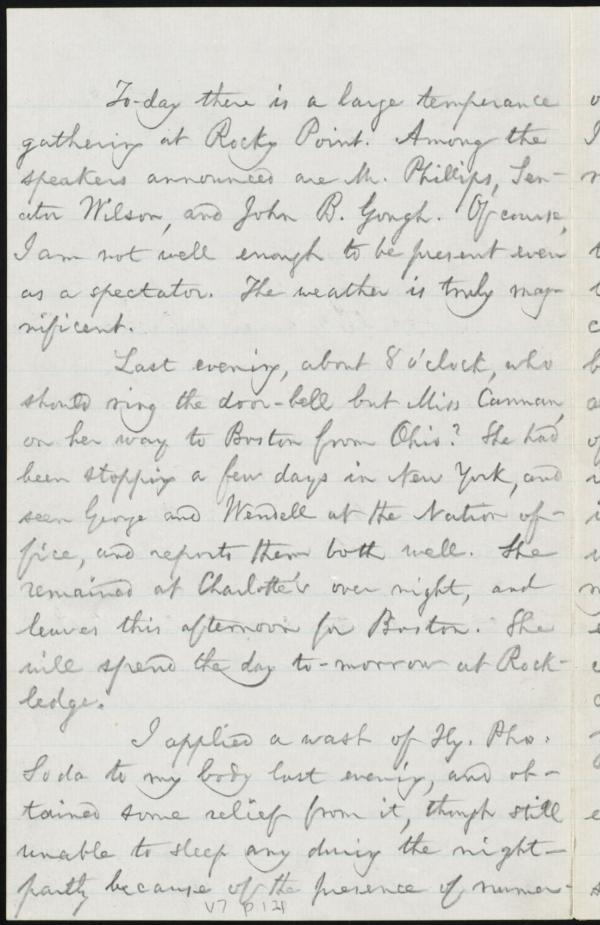 To-day there is a large temperance
gathering at Rocky Point. Among the
speakers announced are Mr. Phillips, Sen-
ator Wilson, and John B. Gough. Of course,
I am not well enough to be present even
as a spectator. The weather is truly mag-
nificent.
Last evening, about 8 o'clock, who
should ring the door-bell but Miss Cannan,
on her way to Boston from Ohio? She had
been stopping a few days in New York, and
seen George and Wendell at the Nation of-
fice, and reports them both well. She
remained at Charlotte's over night, and
leaves this afternoon for Boston. She
will spend the day to-morrow at Rock-
ledge.
I applied a wash of Hy. Pho.
Soda to my body last evening, and ob-
tained some relief from it, though still
unable to sleep any during the night—
partly because of the presence of numer-
V7 P 121